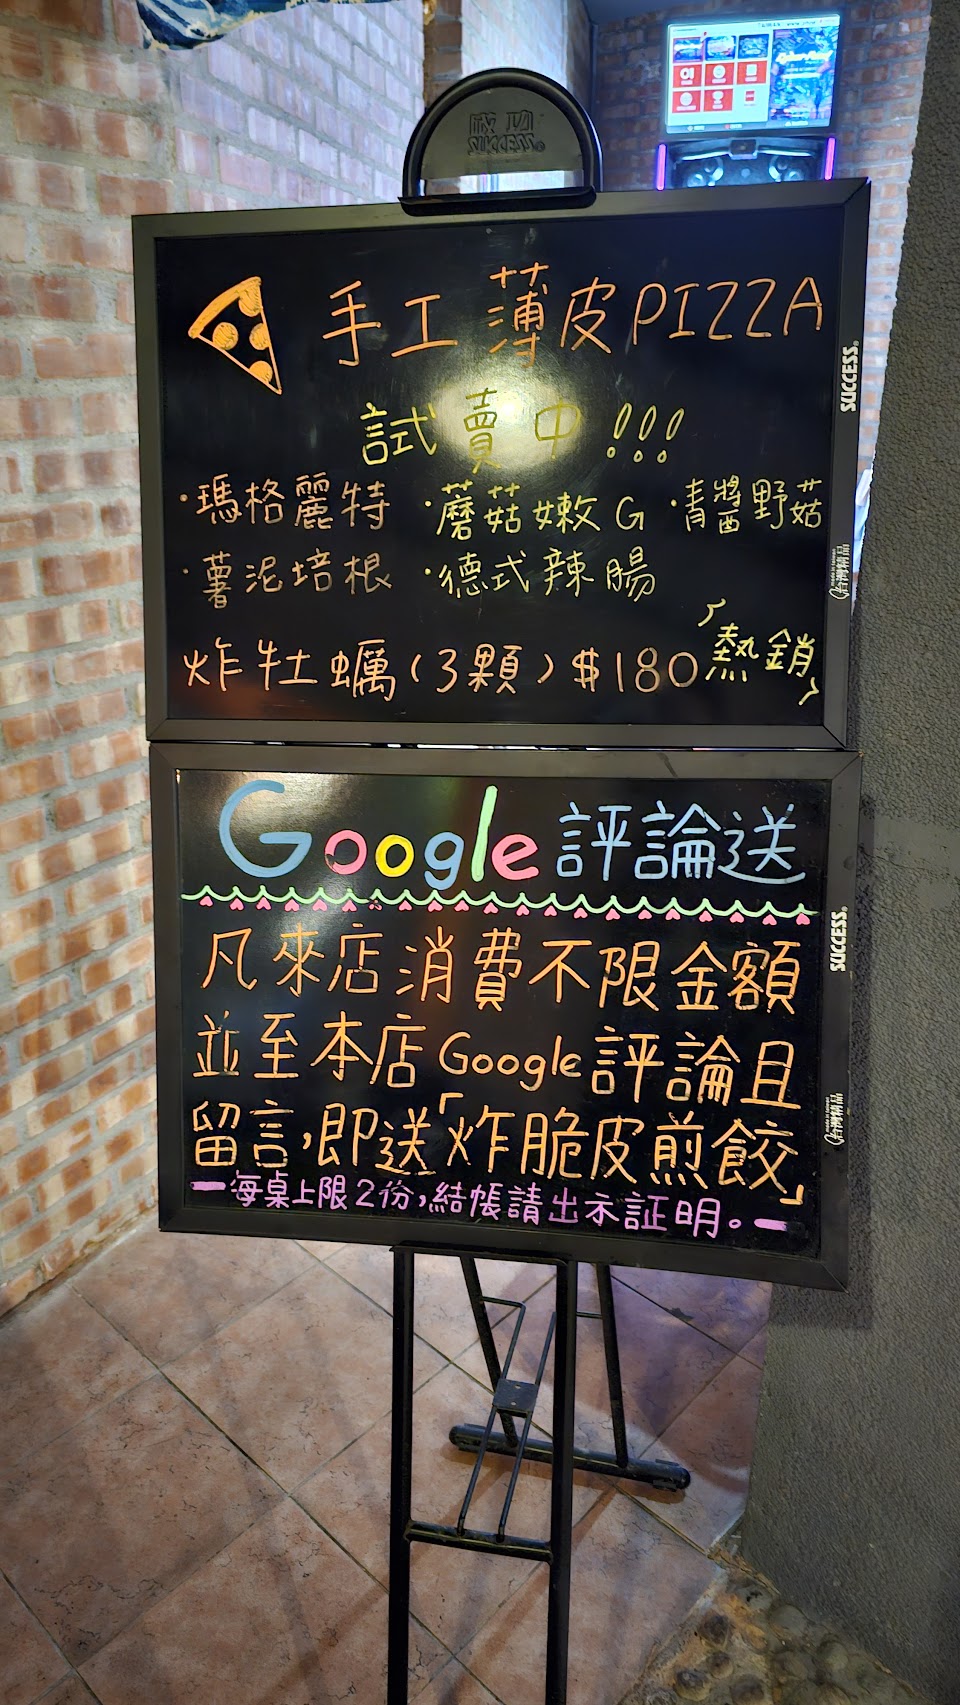 成功
SUCCESS®
手工薄皮PIZZA
試賣中!!!
·瑪格麗特 ·蘑菇嫩G ·青醬野菇
·薯泥培根 ·德式辣腸
炸牡蠣(3顆)$180 熱銷
SUCCESS®
made in taiwan
台灣精品
Google評論送
凡來店消費不限金額
並至本店Google評論且
留言,即送「炸脆皮煎餃」
—每桌上限2份,結帳請出示証明。—
SUCCESS®
made in taiwan
台灣精品